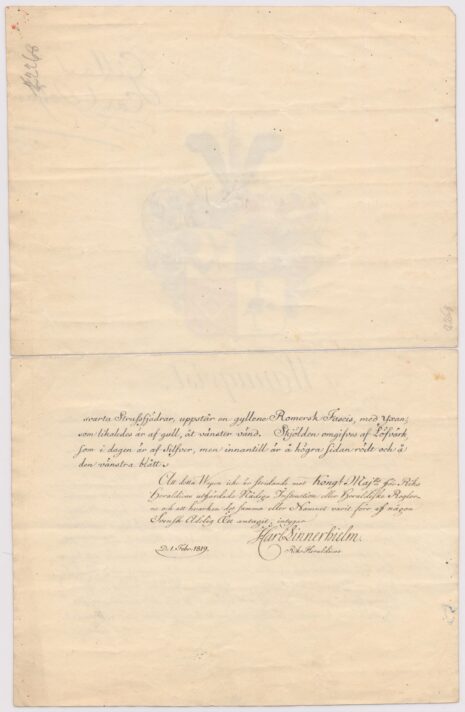 2268
2269
svarta Strussfjädrar, uppstår en gyllene Romersk Fascis, med Yxan,
som likaledes är af gull, åt vänster vänd. Skjölden omgifves af Löfverk,
som i dagen är af Silfver, men innantill är å högra sidan rödt och å
den vänstra blått.
At detta Wapen icke är stridande mot Kongl Maj:ts för Riks
Heraldicus utfärdade Nådige Instruction eller Heraldiske Regler-
ne och att hvarken det samma eller Namnet varit förr af någon
Svensk Adelig Ätt antagit, intygar
D. 1 Febr. 1819.
Carl Linnerhielm.
Riks Heraldicus